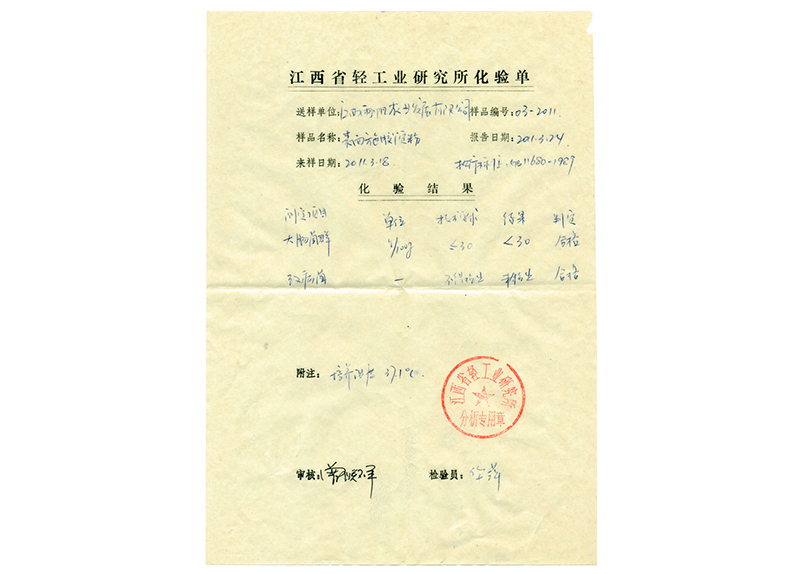 江西省轻工业研究所化验单
送样单位: 江西 农业发展有限公司 样品编号: 03-2011
样品名称: 表面施胶淀粉 报告日期: 2011.3.24
来样日期: 2011.3.18. 执行标准: GB11680-1989
化验结果
测定项目 单位 技术要求 结果 判定
大肠菌群 个/100g ≤30 <30 合格
致病菌 — 不得检出 未检出 合格
附注: 培养温度 37±1℃.
江西省轻工业研究所
分析专用章
审核: 检验员: